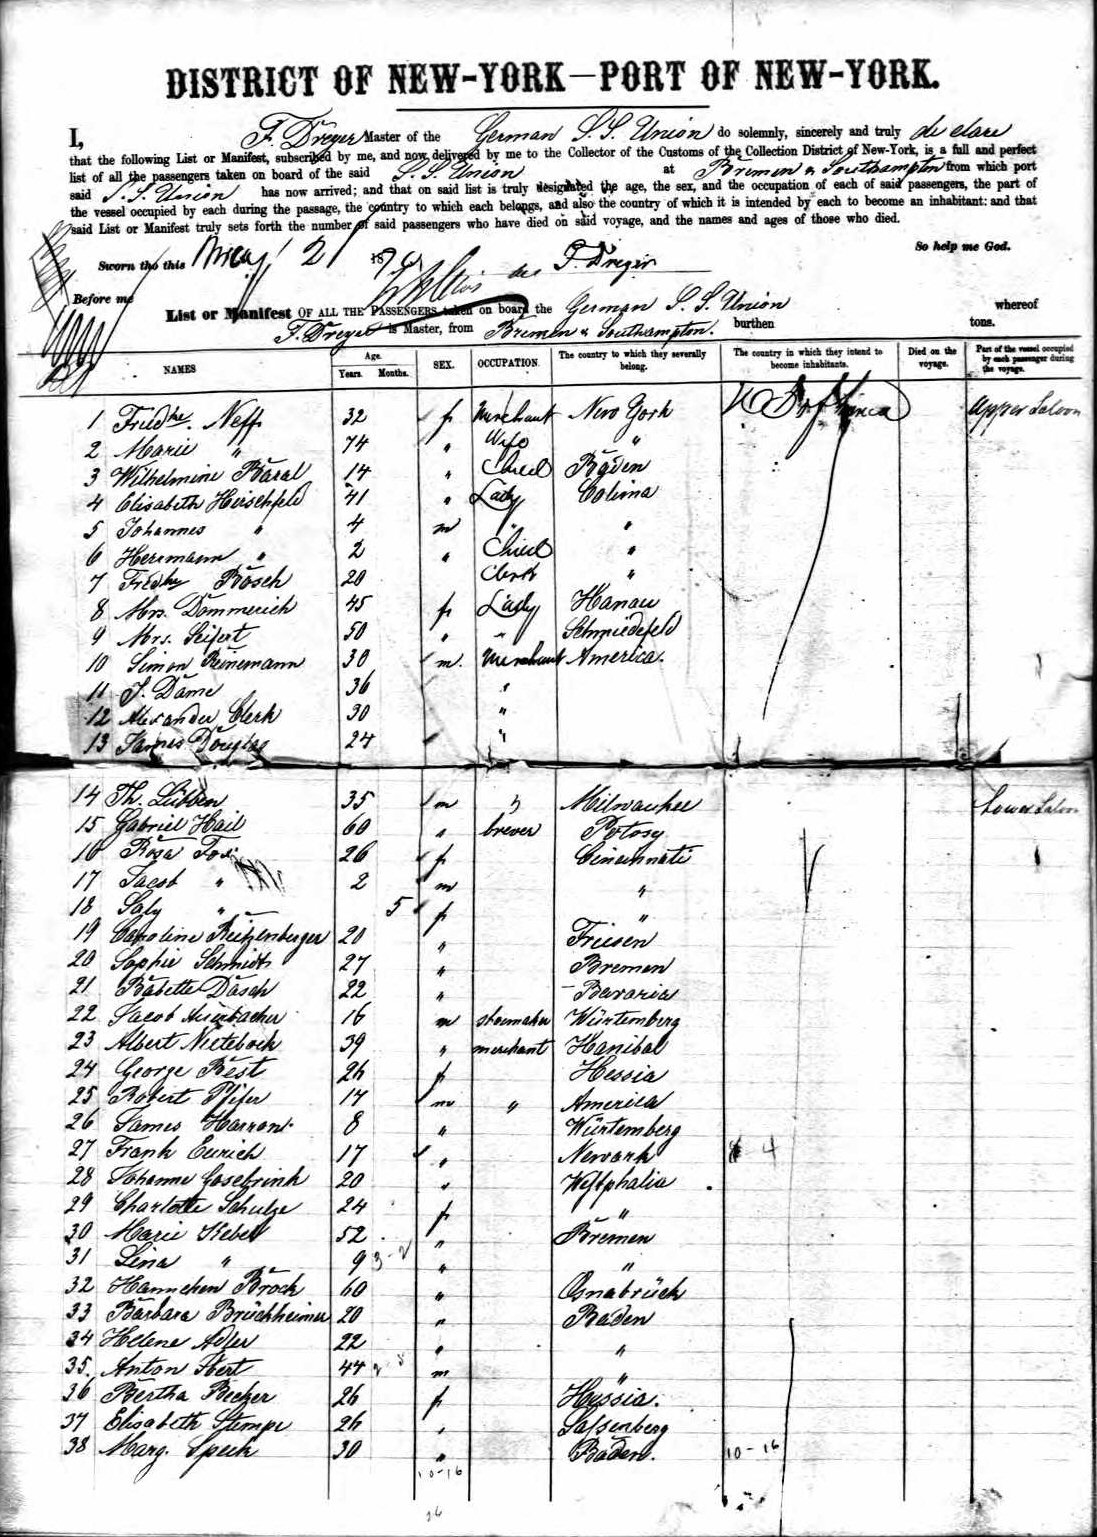 DISTRICT OF NEW-YORK—PORT OF NEW-YORK.
I, F. Dreyer Master of the German S.S. Union do solemnly, sincerely and truly declare
that the following List or Manifest, subscribed by me, and now delivered by me to the Collector of the Customs of the Collection District of New-York, is a full and perfect
list of all the passengers taken on board of the said S.S. Union at Bremen & Southampton from which port
said S.S. Union has now arrived; and that on said list is truly designated the age, the sex, and the occupation of each of said passengers, the part of
the vessel occupied by each during the passage, the country to which each belongs, and also the country of which it is intended by each to become an inhabitant: and that
said List or Manifest truly sets forth the number of said passengers who have died on said voyage, and the names and ages of those who died.
So help me God.
Sworn to this May 21 18 F. Dreyer
Before me
List or Manifest OF ALL THE PASSENGERS taken on board the German S.S. Union whereof
F. Dreyer is Master, from Bremen & Southampton. burthen tons.
NAMES Age. Years. Months. SEX. OCCUPATION. The country to which they severally belong. The country in which they intend to become inhabitants. Died on the voyage. Part of the vessel occupied by each passenger during the voyage.
1 Friedke. Neff 32 f Merchant New York U S of America Upper Saloon
2 Marie " 74 " Wife "
3 Wilhelmine Baral 14 " Child Baden
4 Elisabeth Hirschfeld 41 " Lady Colima
5 Johannes " 4 m "
6 Herrmann " 2 " Child "
7 Friedke Bosch 20 Clerk "
8 Mrs. Dommerich 45 f Lady Hanau
9 Mrs. Seifert 50 " " Schmiedefeld
10 Simon Reinemann 30 m. Merchant America.
11 J. Dame 36 "
12 Alexander Clerk 30 "
13 James Douglas 24 "
14 Th. Lübben 35 m " Milwaukee Lower Saloon
15 Gabriel Hail 60 " brewer Potosy
16 Rosa Fox 26 f Cincinnati
17 Jacob " 2 m "
18 Saly " 5 f "
19 Caroline Reitzenberger 20 " Friesen
20 Sophie Schmidt 27 " Bremen
21 Babette Dasch 22 " Bavaria
22 Jacob Auerbacher 16 m shoemaker Würtemberg
23 Albert Nietebock 39 " merchant Hanibal
24 George Best 26 f Hessia
25 Robert Pfifer 17 m " America
26 James Harron 8 " Würtemberg
27 Frank Eurich 17 " Newark 4
28 Johanne Gosebrink 20 " Westphalia
29 Charlotte Schulze 24 f "
30 Marie Keber 52 " Bremen
31 Lina " 9 "  "
32 Hannchen Brock 60 " Osnabrück
33 Barbara Brückheimer 20 " Baden
34 Helene Adler 22 " "
35. Anton Ebert 44 m "
36 Bertha Becker 26 f Hessia.
37 Elisabeth Stempe 26 " Sassenberg
38 Marg. Speck 30 " Baden. 10-16
10-16